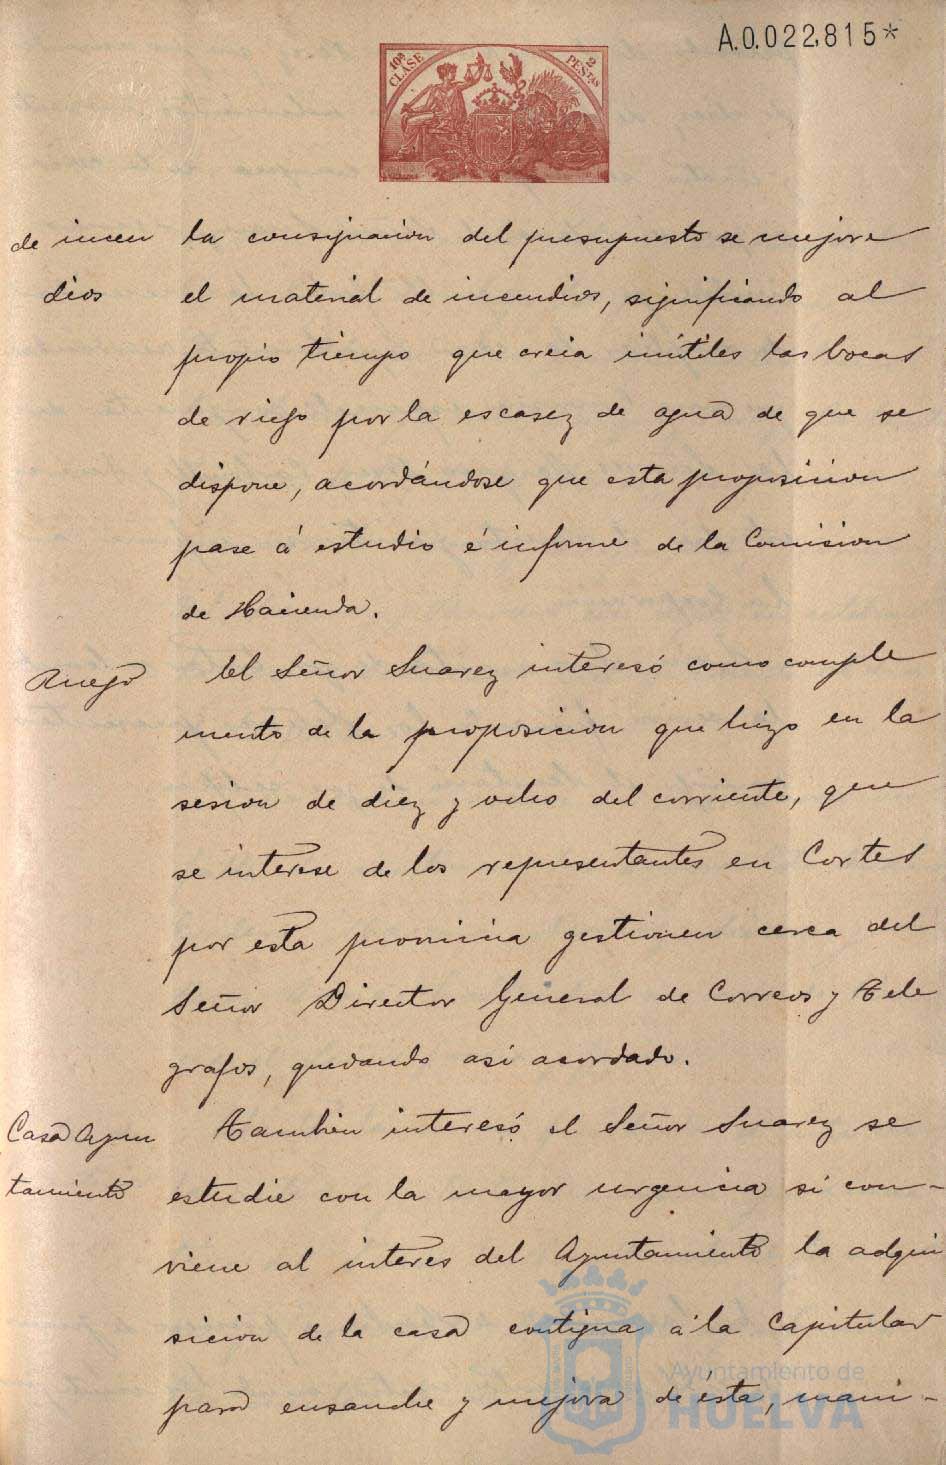 A.0.022,815*
10ª CLASE
2 PESTAS
de incen
dios
la consignacion del presupuesto se mejore
el material de incendios, significando al
propio tiempo que creia inútiles las bocas
de riego por la escasez de agua de que se
dispone, acordándose que esta proposicion
pase á estudio é informe de la Comision
de Hacienda.
Ruego
El Señor Suarez interesó como comple
mento de la proposicion que hizo en la
sesion de diez y ocho del corriente, que
se interese de los representantes en Cortes
por esta provincia gestionen cerca del
Señor Director General de Correos y Tele
grafos, quedando asi acordado.
Casa Ayun
tamiento
Tambien interesó el Señor Suarez se
estudie con la mayor urgencia si con-
viene al interes del Ayuntamiento la adqui
sicion de la casa contigua á la Capitular
para ensanche y mejora de ésta, mani-
Ayuntamiento de
HUELVA